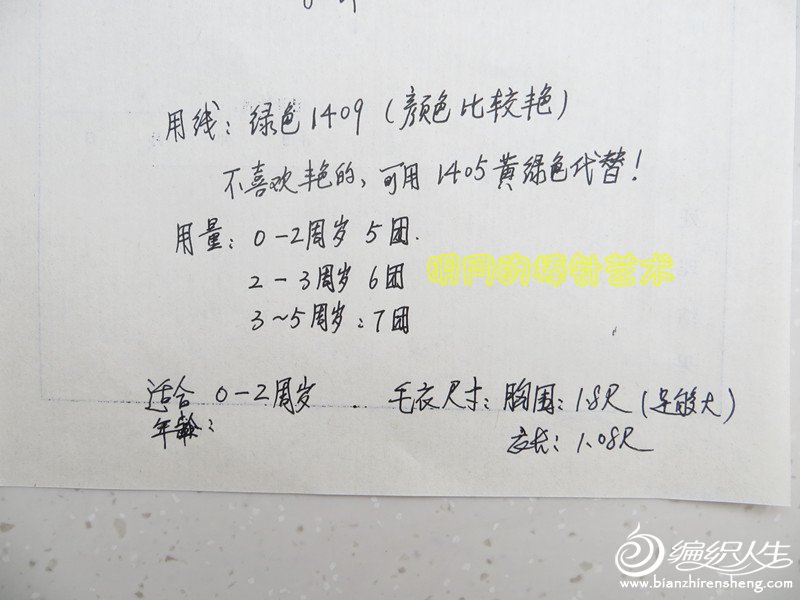 用线：绿色1409（颜色比较艳）
不喜欢艳的，可用1405黄绿色代替！
用量：0－2周岁 5团.
2－3周岁 6团
3~5周岁：7团
适合年龄：0－2周岁
毛衣尺寸：胸围：1.8尺（足够大）
衣长：1.08尺
编织人生
www.bianzhirensheng.com